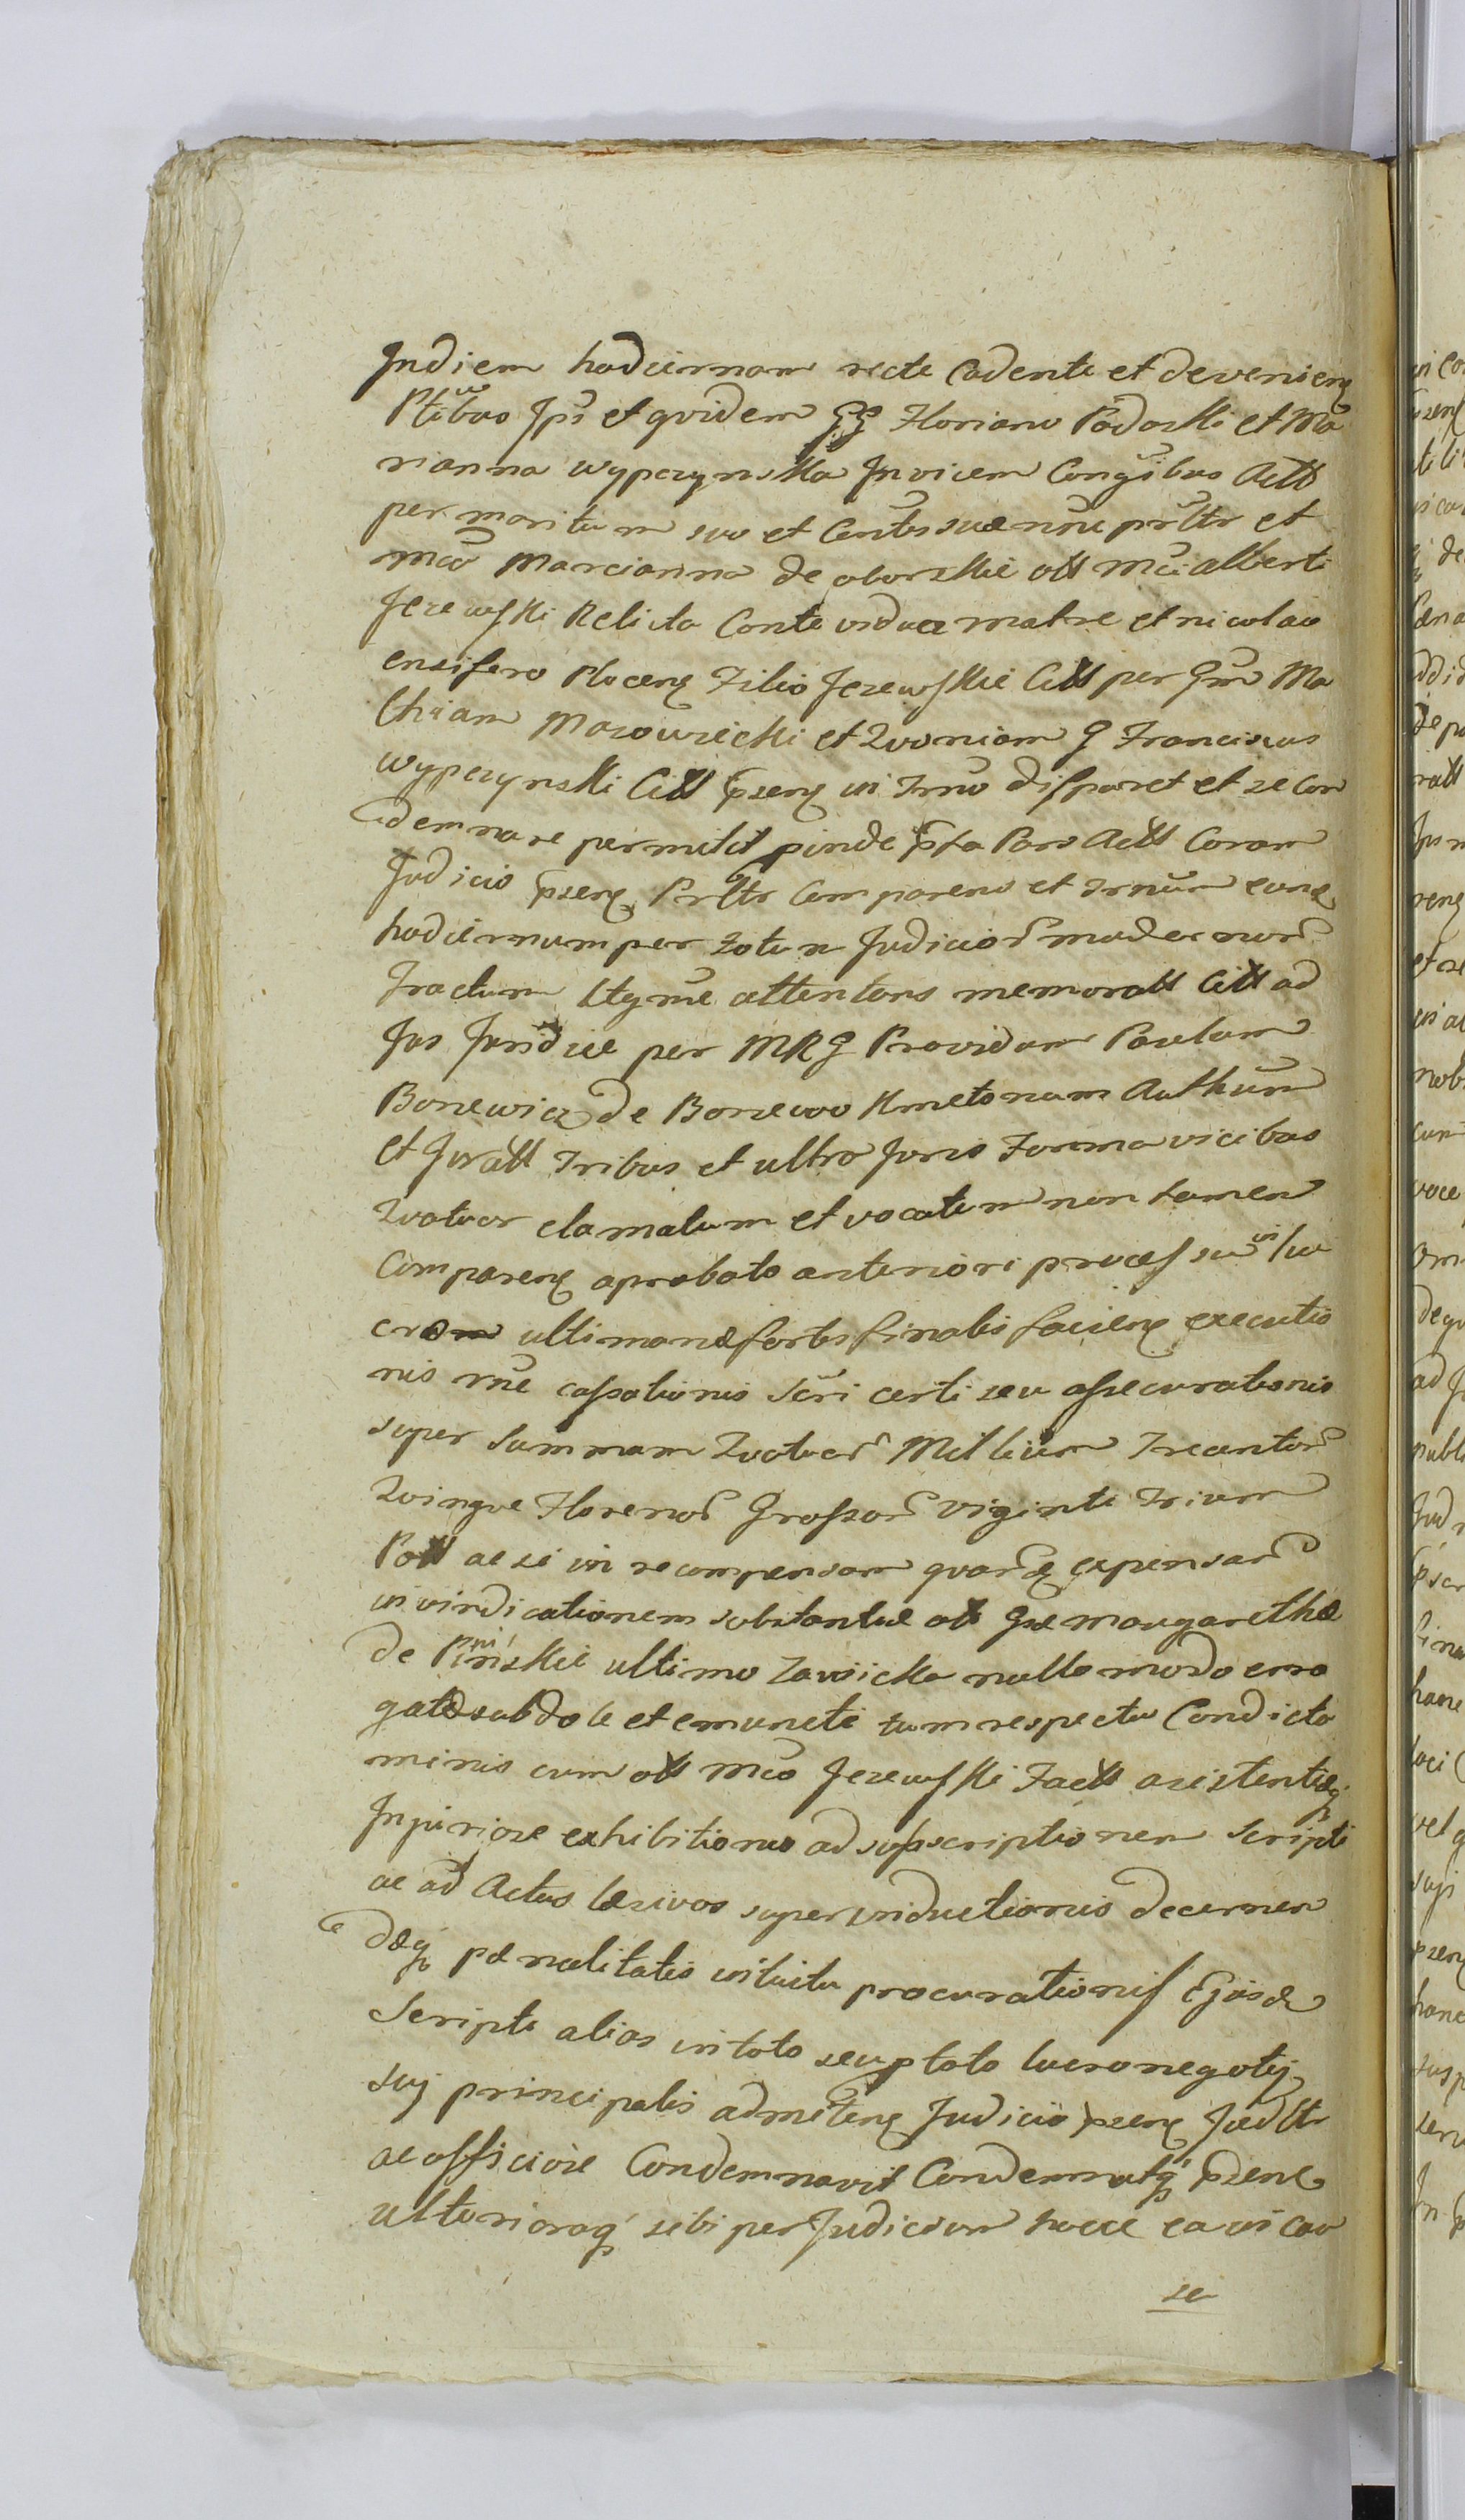 Indiem hodiernam recte Cadente et devenien
Ptibus Ips et qvidem GG Floriano Podoski et Ma
rianna wypczynska Invicem Congibus Actt
per maritum suo et Contis suae nne prltr et
mca Marcianna de oborskie ott mci alberti
Jezewski Relicta Conte vidua matre et nicolao
ensifero Plocen Filio Jezewskie Citt per Gm Ma
thiam Mazowiecki et Qvoniam G Franciscus
wypczynski Citt psens in Trno disparet et se Con
demnare permitit pinde psta Pars Actt Coram
Judicio psen Prltr Comparens et Trnum eunq
hodiernum per totum Judicior modernor
Tractum ltgme attentans memoratt Citt ad
Jus Juridice per MRG Providum Paulum
Bonewicz de Bonewo Kmetonem Authum
et Juratt Tribus et ultra Juris Forma vicibus
Qvatuor clamatum et vocatum non tamen
Comparen aprobato anteriori processu in lu
cro ultimanae sortis finalis facien executio
nis rne cassationis Scri certi seu assecurationis
super Summam Qvatuor Millium Trecentor
Qvinqve Florenor Grossor viginti Trium
Pott ac si in recompensam qvarq expensar
in vindicationem substantiae ott Gae margarethae
de Pinskie ultimo Zawicka nullo modo erro
gatae subdole et emuncte tum respectu Condicta
minis cum ott mco Jezewski Factt assistentiaeq
Injuriose exhibitionis ad subscriptionem Scripti
ac ad Actus laesivos superinductionis decernen
daeq paenalitatis intuitu procurationis Ejusd
Scripti alias in toto seu ptoto lucro negotij
suj principalis admiten Judicio psens Judltr
ac officiose Condemnavit Condemnatq psens
ulterioraq sibi per Judicium hocce ea in cau
sa